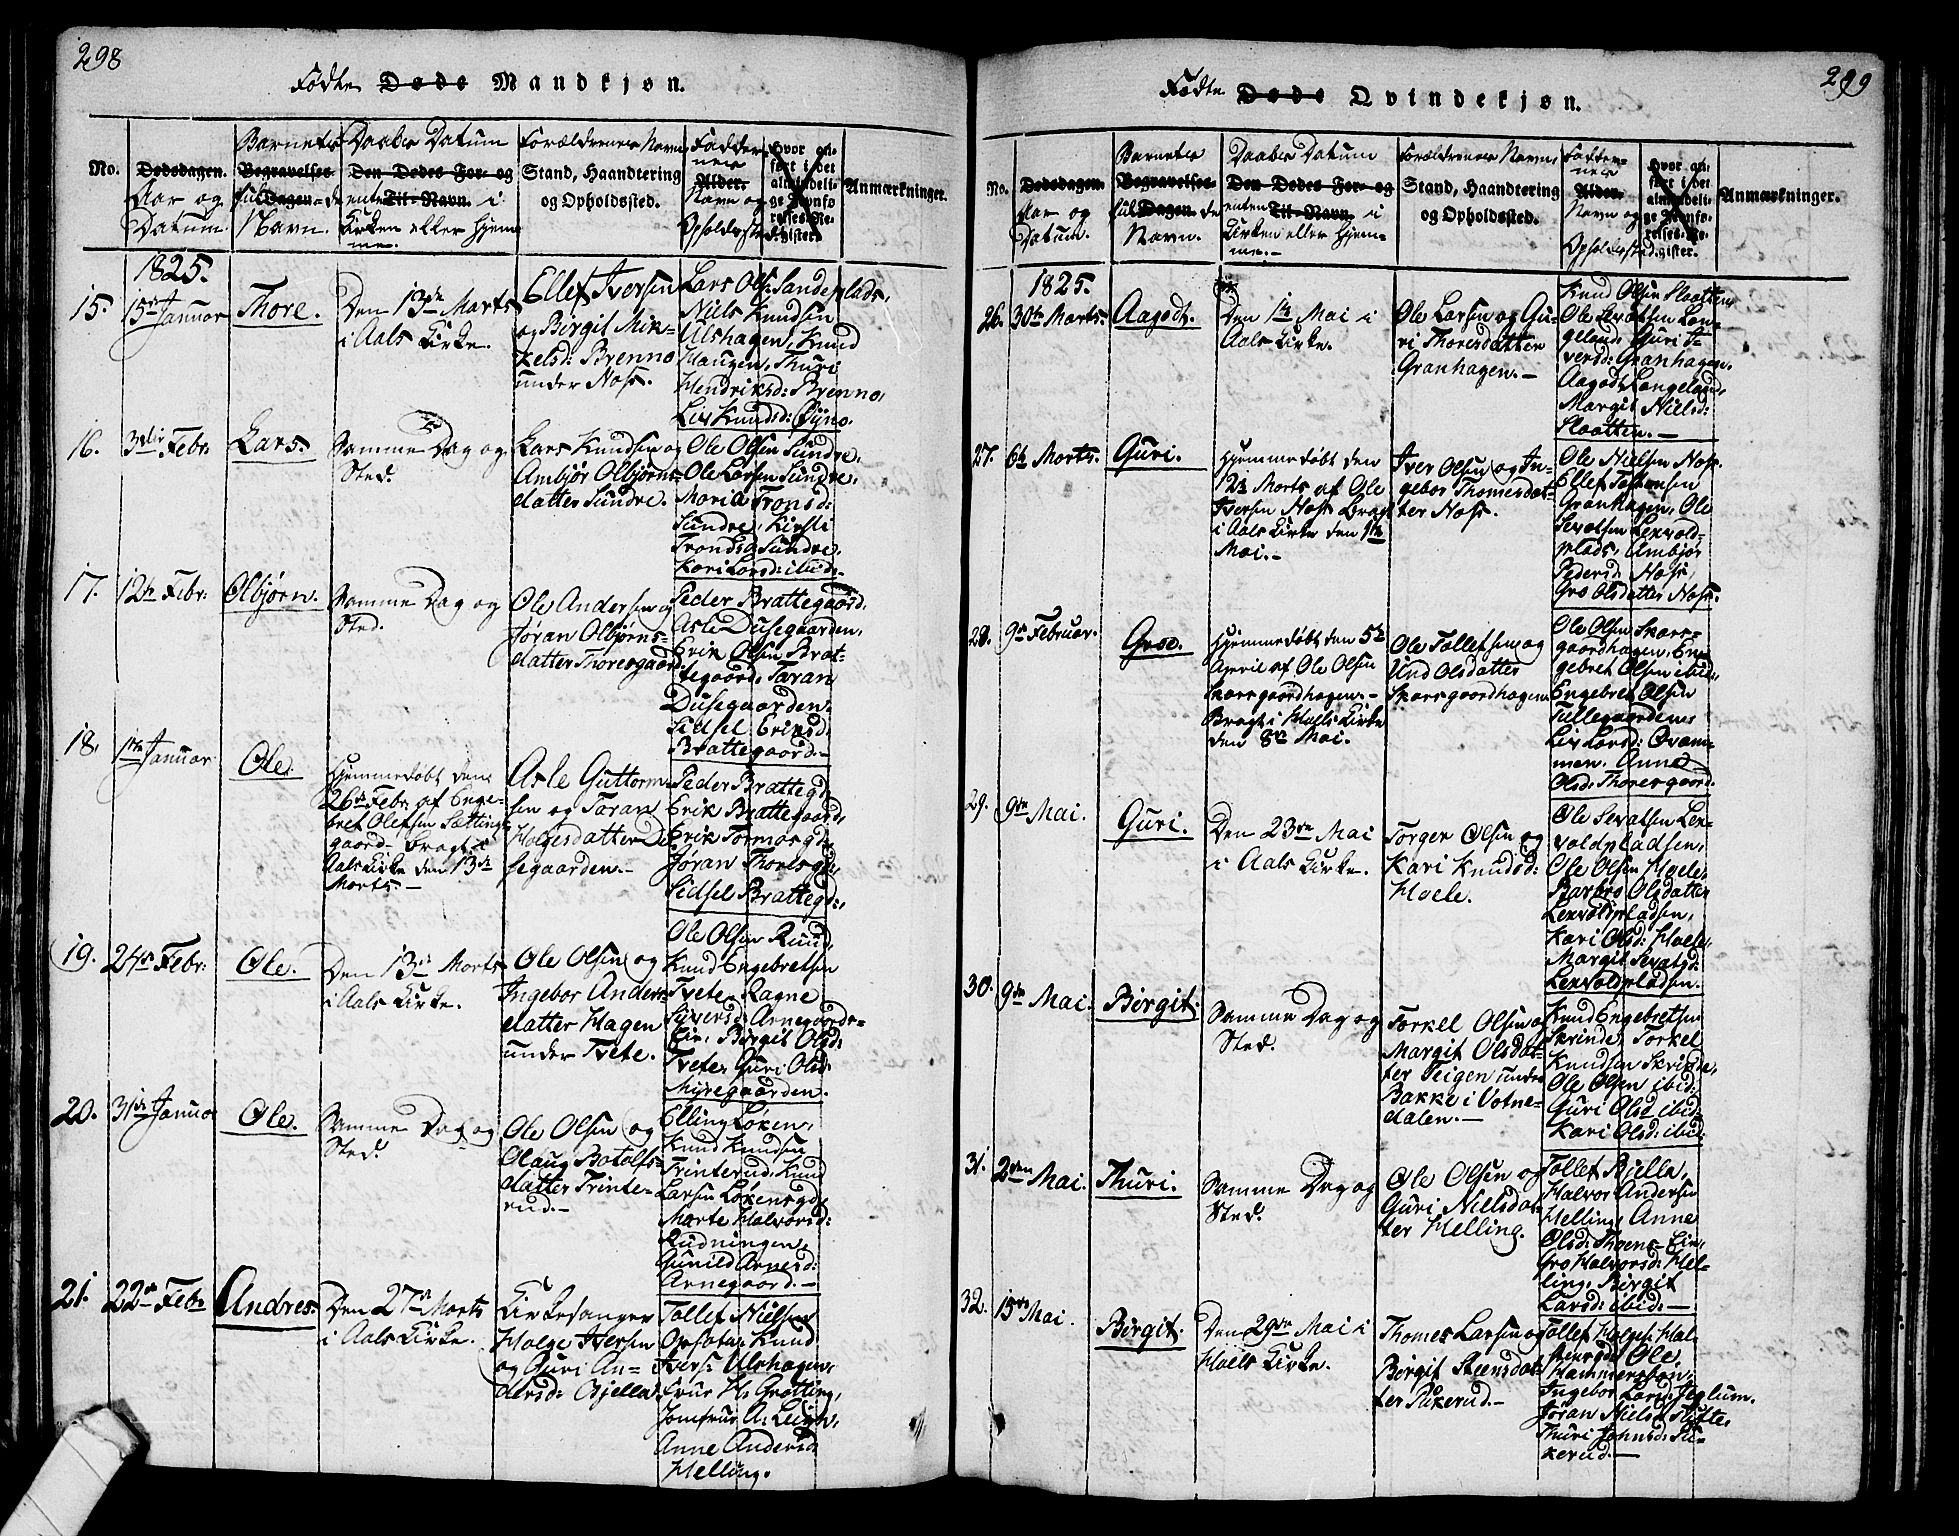 298
Fødte Døde Mandkjøn.
No.
Dødsdagen.
Aar og
Datum.
Barnets
Begravelses
fulde
Dagen
Navn.
Daabes Datum
Den Dødes For- og
enten Til-Navn. i
Kirken eller Hjem-
me.
Forældrenes Navn
Stand, Haandtering
og Opholdssted.
Fadder-
nes
Alder.
Navn og
Opholdssted
Hvor an-
ført i det
almindeli-
ge Jevnfø-
relses-Re-
gister.
Anmærkninger.
1825.
15.
15de Januar
Thore.
Den 13de Marts
i Aals Kirke.
Ellef Iversen
og Birgit Mik-
kelsd: Brenno
under Næss.
Lars Ols: Sandeplads,
Niels Knudsen
Ulshagen, Knud
Haugen, Thuri
Hendriksd: Brenno,
Liv Knudsd: Øyno.
16.
3die Febr:
Lars.
Samme Dag og
Sted.
Lars Knudsen og
Ambjør Olbjørns-
datter Sundre.
Ole Olsen Sundre,
Ole Larsen Sundre,
Maria Tronsd:
Sundre, Kirsti
Trondsd Sundre,
Kari Larsd: ibid:
17.
12te Febr:
Olbjørn.
Samme Dag og
Sted.
Ole Andersen og
Jøran Olbjørns-
datter Thoresgaard.
Peder Brattegaard,
Asle Dusegaarden,
Erik Olsen Brat-
tegaard, Taran
Dusegaarden,
Sidsel Eriksd:
Brattegaard.
18.
1ste Januar
Ole.
Hjemmedøbt den
26de Febr: af Enge-
bret Olefsen Sætting-
gaard. Bragt i
Aals Kirke den 13de
Marts.
Asle Guttorm-
sen og Taran
Holgesdatter Du-
segaarden.
Peder Brattegd,
Erik Brattegaard,
Erik Tormosgd,
Jøran Thoresgd,
Sidsel Brattegd:,
19.
24de Febr:
Ole.
Den 13de Marts
i Aals Kirke.
Ole Olsen og
Ingebor Anders-
datter Hagen
under Tvete.
Ole Olsen Ruud,
Knud Engebretsen
Tvete, Ragne
Siversd: Arnegaards-
Eie, Birgit Olsd:
Tvete, Guri Olsd
Myregaarden.
20.
31de Januar
Ole.
Samme Dag og
Sted.
Ole Olsen og
Olaug Botolfs-
datter Trinte-
rud.
Elling Løken,
Knud Knudsen
Trinterud, Knud
Larsen Løkensgd:
Marte Halvorsd:
Rudningen,
Gunild Arnesd:
Arnegaard.
21.
22de Febr
Andres.
Den 27de Marts
i Aals Kirke.
Kirkesanger
Holge Iversen
og Guri An-
dersd: Bjella.
Tollef Nielsen
Opsata, Knud
Ivers: Ulshagen,
Frue H: Grøtting,
Jomfrue A: Leigh,
Anne Andersd:
Helling.
299
Fødte Døde Qvindekjøn.
No.
Dødsdagen.
Aar og
Datum.
Barnets
Begravelses-
fulde
Dagen
Navn.
Daabes Datum
Den Dødes For- og
enten Til-Navn. i
Kirken eller Hjem-
me.
Forældrenes Navn,
Stand, Haandtering
og Opholdssted.
Fadder-
nes
Alder.
Navn og
Opholdssted
Hvor an-
ført i det
almindeli-
ge Jevnfø-
relses-Re-
gister.
Anmærkninger.
1825.
26.
30te Marts.
Aagodt.
Den 1te Mai i
Aals Kirke.
Ole Larsen og Gu-
ri Thoresdatter
Granhagen.
Knud Olsen Slaatten,
Ole Sevatsen Lan-
geland, Guri I-
versd: Granhagen,
Aagodt Langeland,
Margit Nielsd:
Slaatten.
27.
6te Marts.
Guri.
Hjemmedøbt den
12te Marts af Ole
Iversen Næss Bragt
i Aals Kirke den 1ste
Mai.
Iver Olsen og In-
gebor Thomesdat-
ter Næss.
Ole Nielsen Næss,
Ellef Torensen
Granhagen, Ole
Sevatsen Lexvold-
plads, Ambjør
Pedersd: Næss,
Gro Olsdatter Næss.
28.
9de Februar.
Groe.
Hjemmedøbt den 5te
April af Ole Olsen
Skarsgaardhagen.
Bragt i Hoels Kirke
den 8de Mai.
Ole Tollefsen og
Und Olsdatter
Skarsgaardhagen
Ole Olsen Skars-
gaardhagen, En-
gebret Olsen ibid,
Engebret Olsen
Tullegaarden,
Liv Larsd: Qvam-
men, Anne
Olsd: Thoresgaard.
29.
9de Mai.
Guri.
Den 23de Mai
i Aals Kirke.
Torger Olsen og
Kari Knudsd:
Hoele.
Ole Sevatsen Lex-
voldpladsen,
Ole Olsen Hoele,
Barbro Olsdatter
Lexvoldpladsen,
Kari Olsd: Hoele,
Margit Sevatsd:
Lexvoldpladsen.
30.
9de Mai.
Birgit.
Samme Dag og
Sted.
Torkel Olsen og
Margit Olsdat-
ter Teigen under
Bakke i Votne-
dalen.
Knud Engebretsen
Skrinde, Torkel
Knudsen Skrinde,
Ole Olsen ibid:
Guri Olsd: ibid:
Kari Olsd: ibid:
31.
2den Mai.
Thuri.
Samme Dag og
Sted.
Ole Olsen og
Guri Nielsdat-
ter Helling.
Tollef Bjella,
Halvor Andersen
Helling, Anne
Olsd: Thoens-Eie,
Gro Halvorsd: Hel-
ling, Birgit
Larsd: ibid:
32.
15de Mai.
Birgit.
Den 29de Mai i
Hoels Kirke.
Thomes Larsen og
Birgit Steensdat-
ter Pükerud.
Tollef Holges: Hal-
stensgd, Ole
Hammersbøn,
Ingebor Larsd: Jeglum.
Jøran Nielsd Tufte,
Thuri Johnsd: Pü-
kerud.